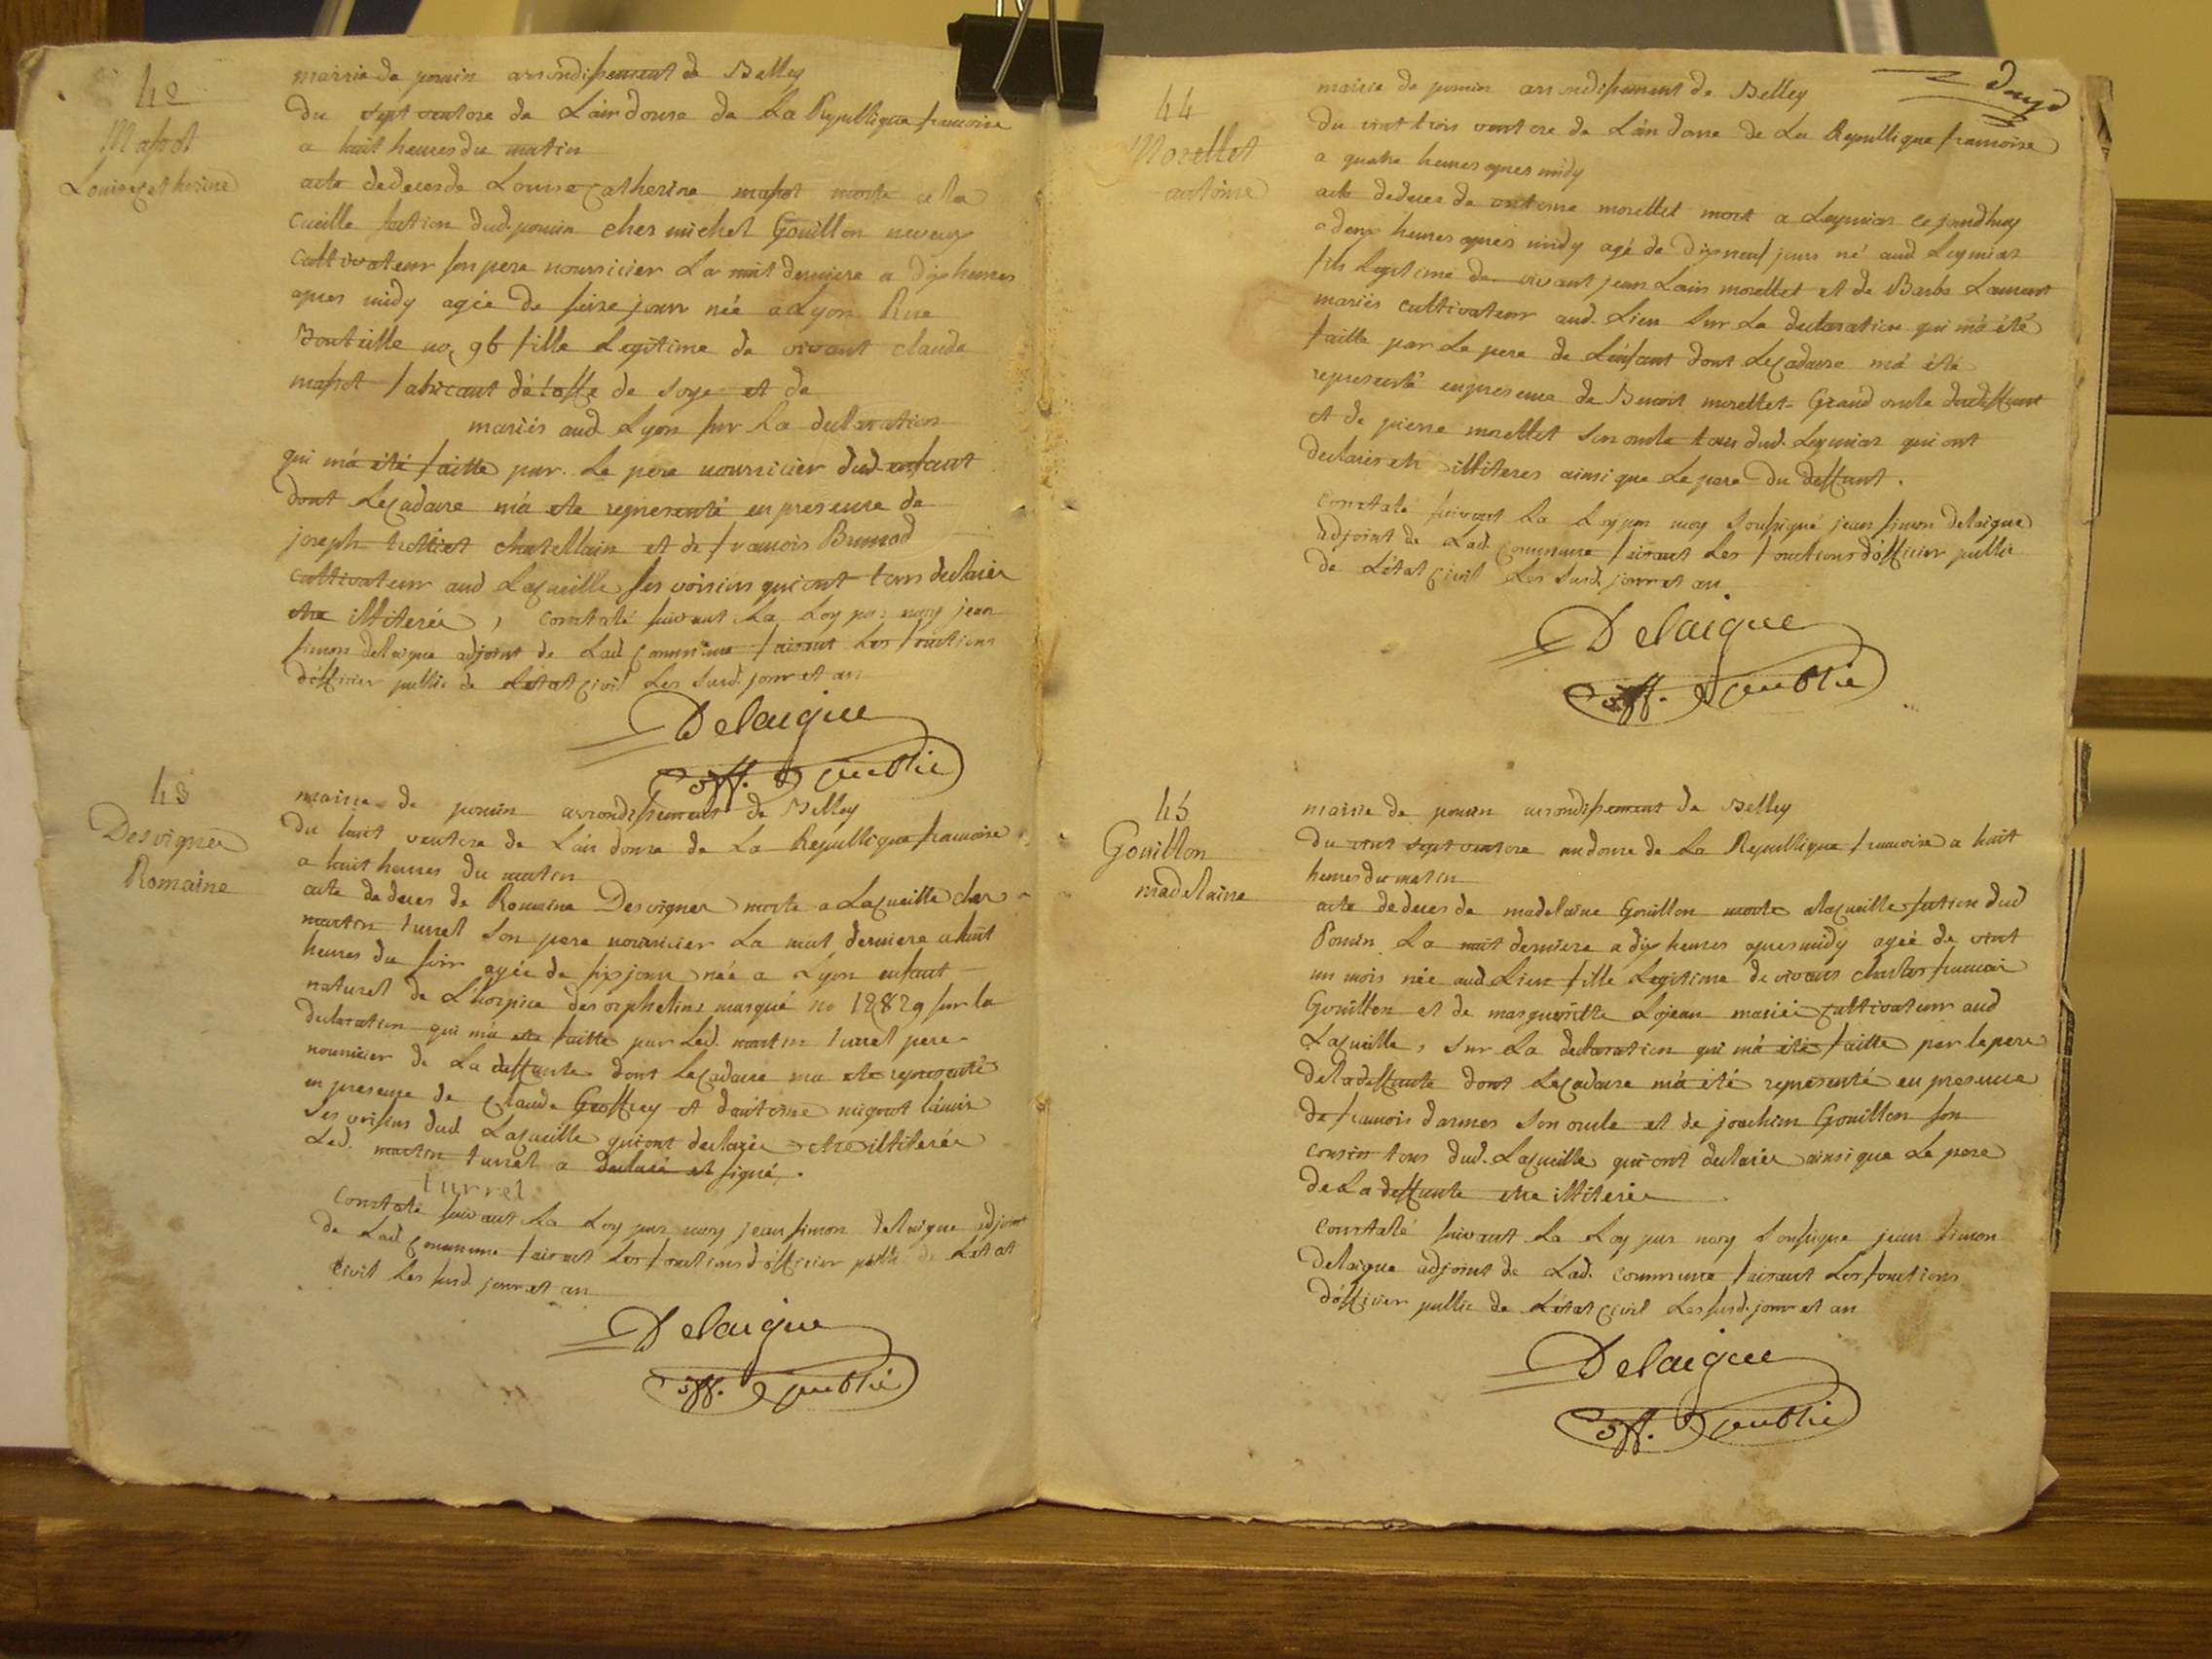 42
Massot
Louise Catherine
mairie de poncin arrondissement de Belley
Du sept ventose de L'an douse de La Republique francoise
a huit heures du matin
acte de deces de Louise Catherine massot morte a la
cueille section dud. poncin ches michel Gouillon neveux
cultivateur son pere nourricier La nuit derniere a dix heures
apres midy agée de seise jours née a Lyon Rue
no, 96 fille Legitime de vivant claude
massot fabricant d'étoffe de soye et de
mariés aud Lyon sur La declaration
qui m'a été faitte par Le pere nourricier dud enfant
dont Le Cadavre m'a ete representé en presence de
joseph chatellain et de francois Brunod
cultivateur aud Lacueille ses voisins qui ont tous declarée
etre illiterée, constaté suivant La Loy par moy jean
simon delaigue adjoint de Lad. Commune faisant Les fonctions
d'officier public de L'etat Civil Les susd. jour et an
Delaigue
off. public
43
Desvignes
Romaine
mairie de poncin arrondissement de Belley
Du huit ventose de L'an douse de La Republique francoise
a huit heures du matin
acte de deces de Romaine Desvignes morte a Lacueille ches
martin turrel son pere nourricier La nuit derniere a huit
heures du soir agée de six jours née a Lyon enfant
naturel de L'hospice des orphelins marqué no 12829 sur la
declaration qui m'a ete faitte par Led. martin turrel pere
nourricier de La deffunte dont Le Cadavre ma ete representé
en presence de Claude Geoffrey et d'antoine mignot l'ainé
ses voisins dud Lacueille qui ont declarée etre illiterée
Led. martin turrel a declaré et signé.
turrel
Constaté suivant La Loy par moy jean simon delaigue adjoint
de Lad. Commune faisant Les fonctions d'officier public de L'etat
Civil Les susd. jour et an
Delaigue
off. public
douse
44
Morellet
antoine
mairie de poncin arrondissement de Belley
Du vint trois ventose de L'an douse de La Republique francoise
a quatre heures apres midy
acte de deces de antoine morellet mort a Leymiat ce jourdhuy
a deux heures apres midy agé de dix neuf jours né aud Leymiat
fils Legitime de vivant jean Louis morellet et de Barbe Laurent
mariés cultivateur aud. Lieu sur La declaration qui m'a été
faitte par Le pere de L'enfant dont Le Cadavre m'a été
representé en presence de Benoit morellet Grand oncle du deffunt
et de pierre morellet son oncle tous dud. Leymiat qui ont
declarés etre illiteres ainsi que Le pere du deffunt.
constaté suivant La Loy par moy soussigné jean simon delaigue
adjoint de Lad. Commune faisant Les fonctions d'officier public
de L'état Civil Les susd. jour et an
Delaigue
off. public
45
Gouillon
madelaine
mairie de poncin arrondissement de Belley
Du vint sept ventose an douse de La Republique francoise a huit
heures du matin
acte de deces de madelaine Gouillon morte a lacueille section dud
Poncin La nuit derniere a dix heures apres midy agée de vint
un mois née aud. Lieu fille Legitime de vivans charles francois
Gouillon et de margueritte Lojean mariée Cultivateur aud
Lacueille, sur La declaration qui m'a été faitte par le pere
de la deffunte dont Le Cadavre m'a été representé en presence
de francois darmes son oncle et de joachim Gouillon son
cousin tous dud. Lacueille qui ont declarée ainsi que Le pere
de La deffunte etre illiterée
constaté suivant La Loy par moy soussigne jean simon
delaigue adjoint de Lad. commune faisant Les fonctions
d'officier public de L'état Civil Les susd. jour et an
Delaigue
off. public